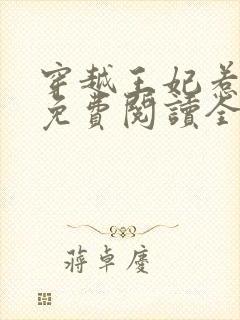 穿越王妃惹
免費閱讀全
蔣卓慶